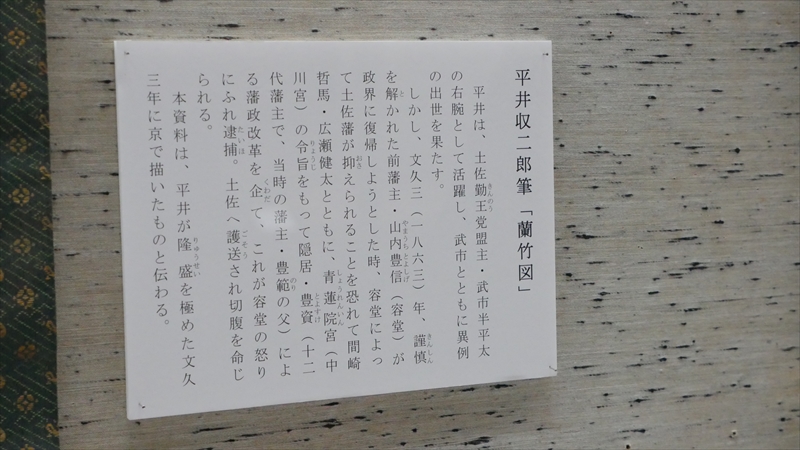 平井収二郎筆「蘭竹図」
平井は、土佐勤王党盟主・武市半平太
の右腕として活躍し、武市とともに異例
の出世を果たす。
しかし、文久三（一八六三）年、謹慎
を解かれた前藩主・山内豊信（容堂）が
政界に復帰しようとした時、容堂によっ
て土佐藩が抑えられることを恐れて間崎
哲馬・広瀬健太とともに、青蓮院宮（中
川宮）の令旨をもって隠居・豊資（十二
代藩主で、当時の藩主・豊範の父）によ
る藩政改革を企て、これが容堂の怒り
にふれ逮捕。土佐へ護送され切腹を命じ
られる。
本資料は、平井が隆盛を極めた文久
三年に京で描いたものと伝わる。